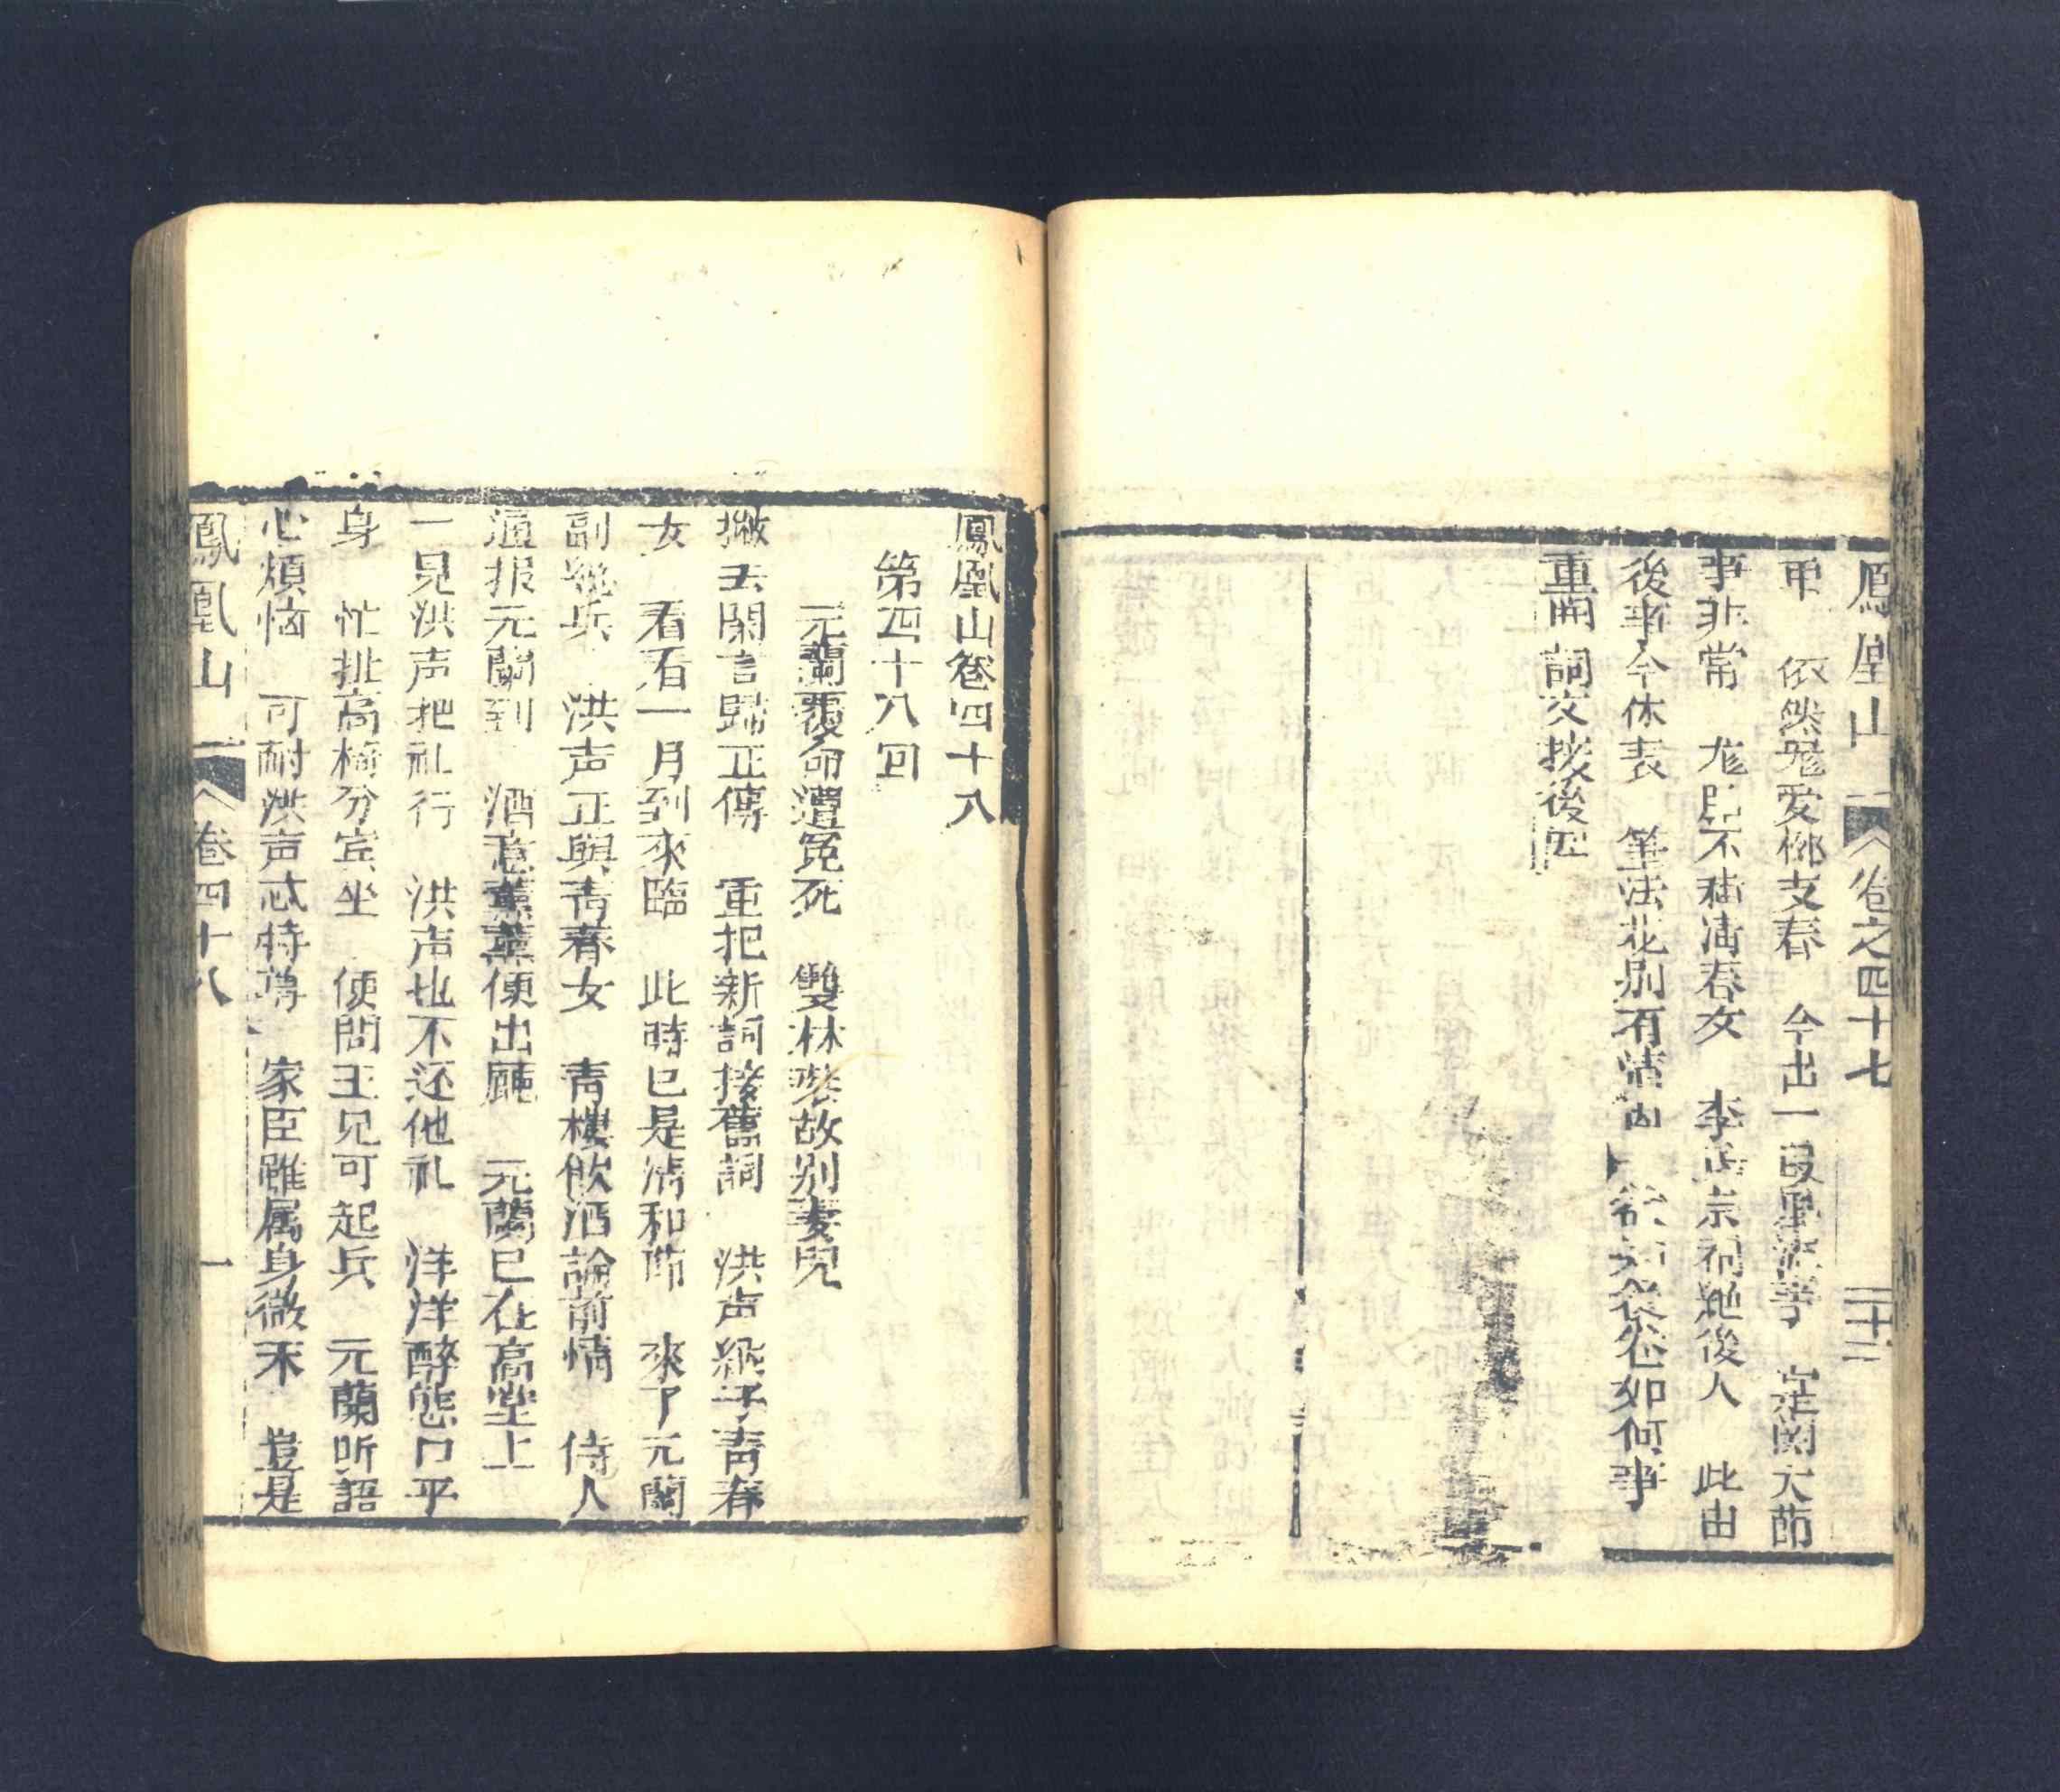 鳳凰山 卷之四十七 二十二
甲 依然是愛桃支春 今出一段風流事 定関大節
事非常 尨臣不稱淸春女 李氏宗祠絶後人 此由
後事今休表 筆法花別有情 如何事
重開詞文接後回
鳳凰山卷四十八
第四十八回
元蘭覆命遭冤死 雙林裝故别妻兒
撇去閑言歸正傳 重把新詞接舊詞 洪声縱子青春
女 看看一月到來臨 此時已是淸和節 來了元蘭
副總兵 洪声正與青春女 青樓飲酒論前情 侍人
通报元蘭到 酒意薰薰便出廳 元蘭已在高堂上
一見洪声把礼行 洪声也不还他礼 洋洋醉態口平
身 忙扯高椅分宾坐 便問王兄可起兵 元蘭听語
心煩恼 可耐洪声忒特尊 家臣雖属身微末 豈是
鳳凰山 卷四十八 一